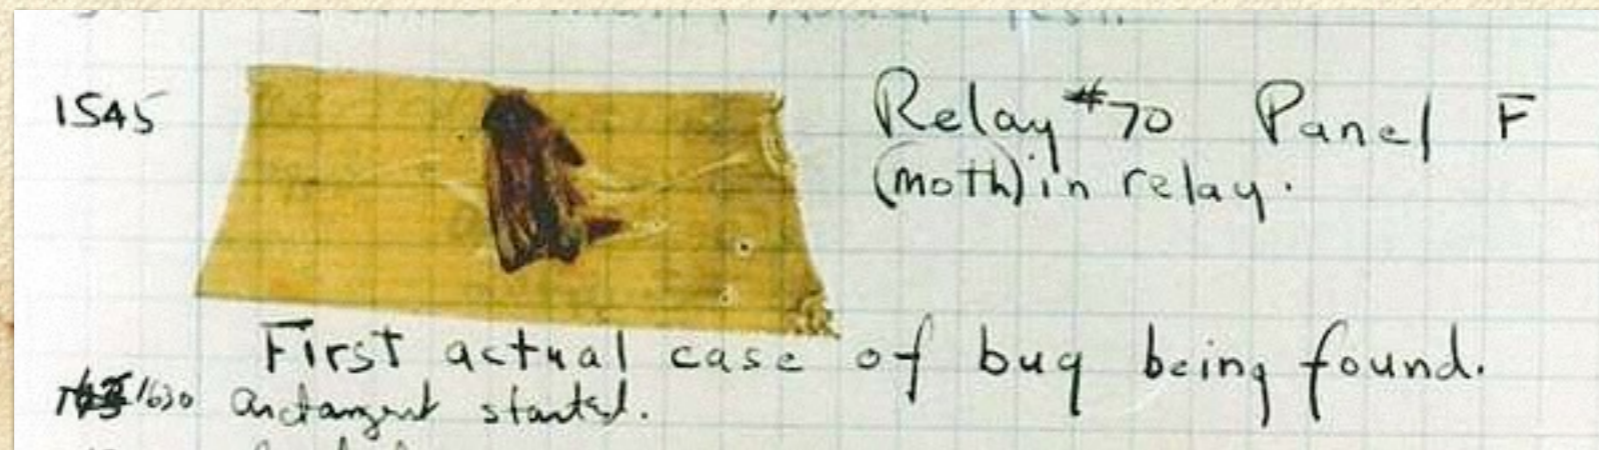 1545 Relay #70 Panel F
(moth) in relay.
First actual case of bug being found.
1630 arctangent started.